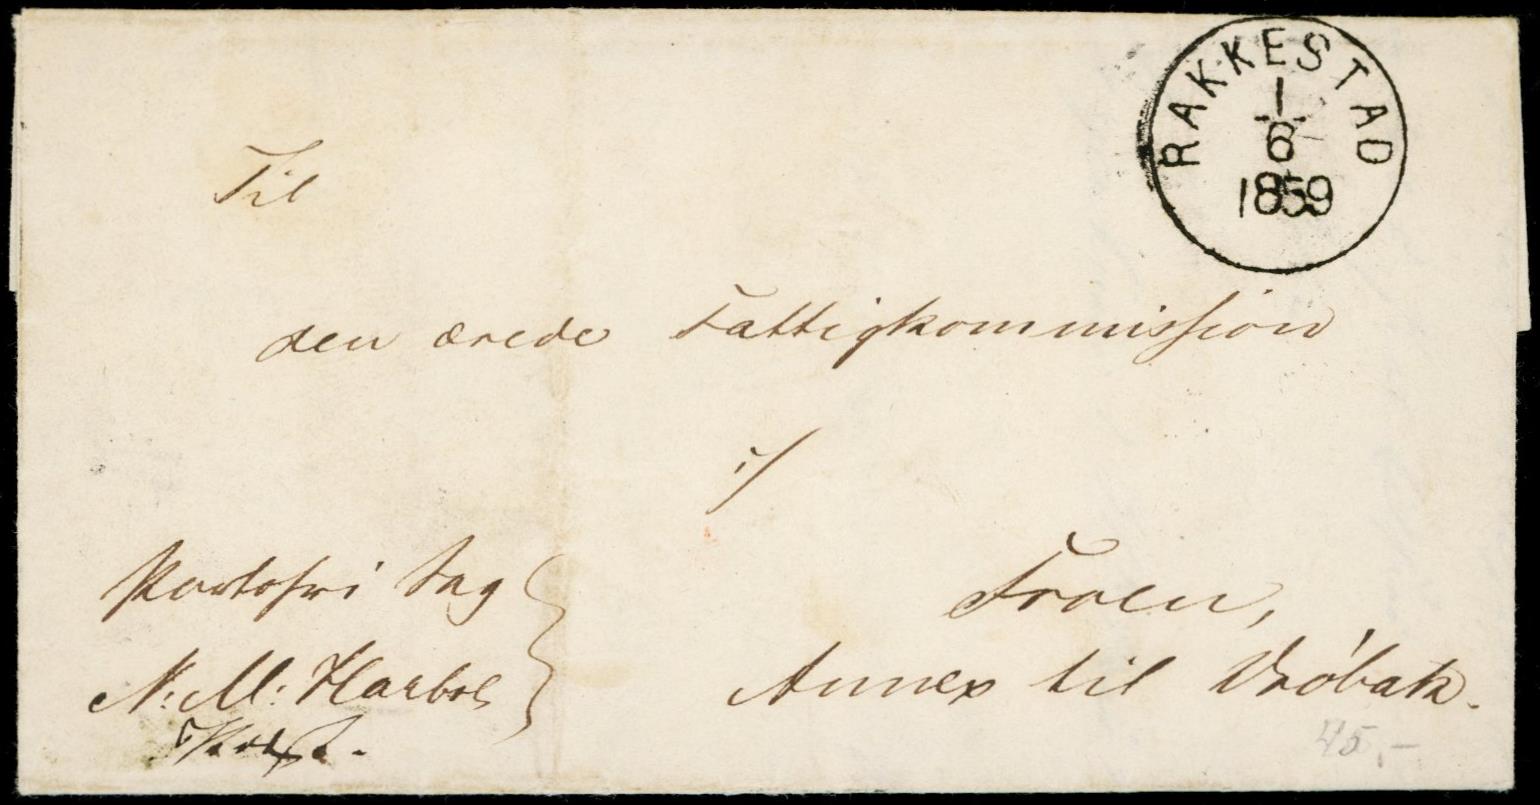 RAKKESTAD
1
6
1859
Til
den ærede Fattigkommission
i/
Froen,
Annex til Drøbak.
Portofri Sag
N: M: Harboe
45,-